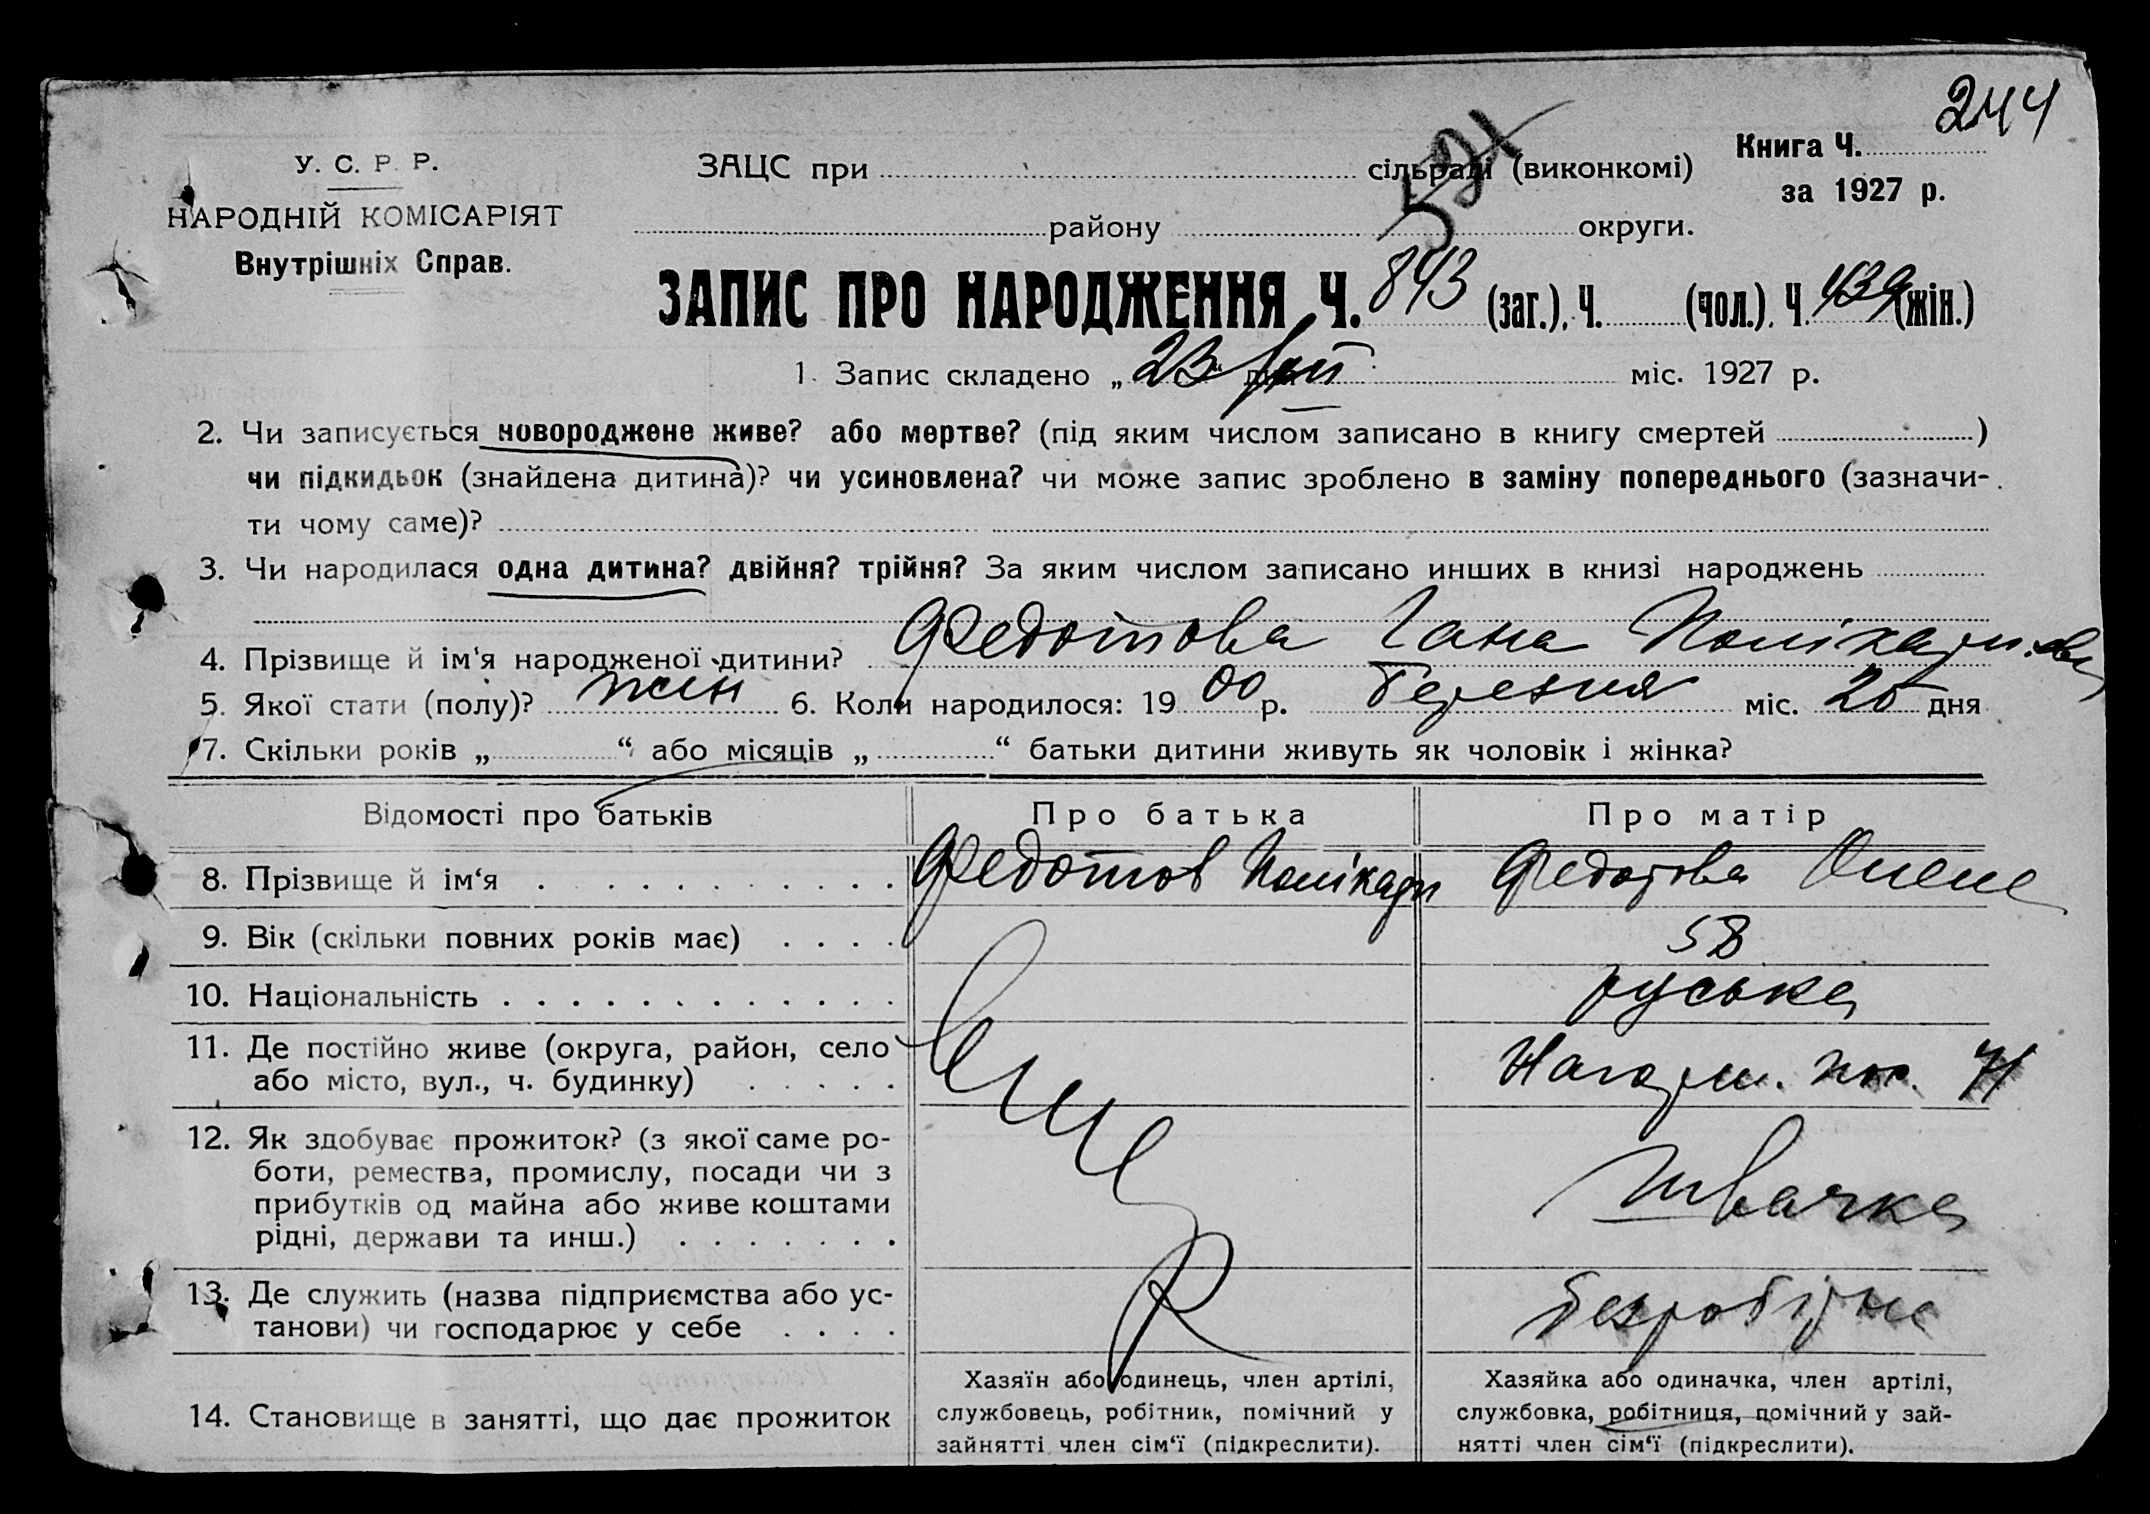 244
У. С. Р. Р.
НАРОДНІЙ КОМІСАРІЯТ
Внутрішніх Справ.
ЗАЦС при сільраді (виконкомі)
району округи.
Книга Ч.
за 1927 р.
ЗАПИС ПРО НАРОДЖЕННЯ Ч. 843 (заг.), Ч. (чол.), Ч. 439 (жін.)
1. Запис складено „ 23 “ дня міс. 1927 р.
2. Чи записується новороджене живе? або мертве? (під яким числом записано в книгу смертей )
чи підкидьок (знайдена дитина)? чи усиновлена? чи може запис зроблено в заміну попереднього (зазначи-
ти чому саме)?
3. Чи народилася одна дитина? двійня? трійня? За яким числом записано инших в книзі народжень
4. Прізвище й ім‘я народженої дитини? Федотова Гана
5. Якої стати (полу)? жін 6. Коли народилося: 19 00 р. березня міс. 25 дня
7. Скільки років „ “ або місяців „ “ батьки дитини живуть як чоловік і жінка?
Відомості про батьків Про батька Про матір
8. Прізвище й ім‘я Федотов Полікарп Федотова Олена
9. Вік (скільки повних років має) 58
10. Національність руська
11. Де постійно живе (округа, район, село
або місто, вул., ч. будинку) 71
12. Як здобуває прожиток? (з якої саме ро-
боти, ремества, промислу, посади чи з
прибутків од майна або живе коштами
рідні, держави та инш.) швачка
13. Де служить (назва підприємства або ус-
танови) чи господарює у себе безробітна
14. Становище в занятті, що дає прожиток
Хазяїн або одинець, член артілі,
службовець, робітник, помічний у
зайнятті член сім‘ї (підкреслити).
Хазяйка або одиначка, член артілі,
службовка, робітниця, помічний у зай-
нятті член сім‘ї (підкреслити).